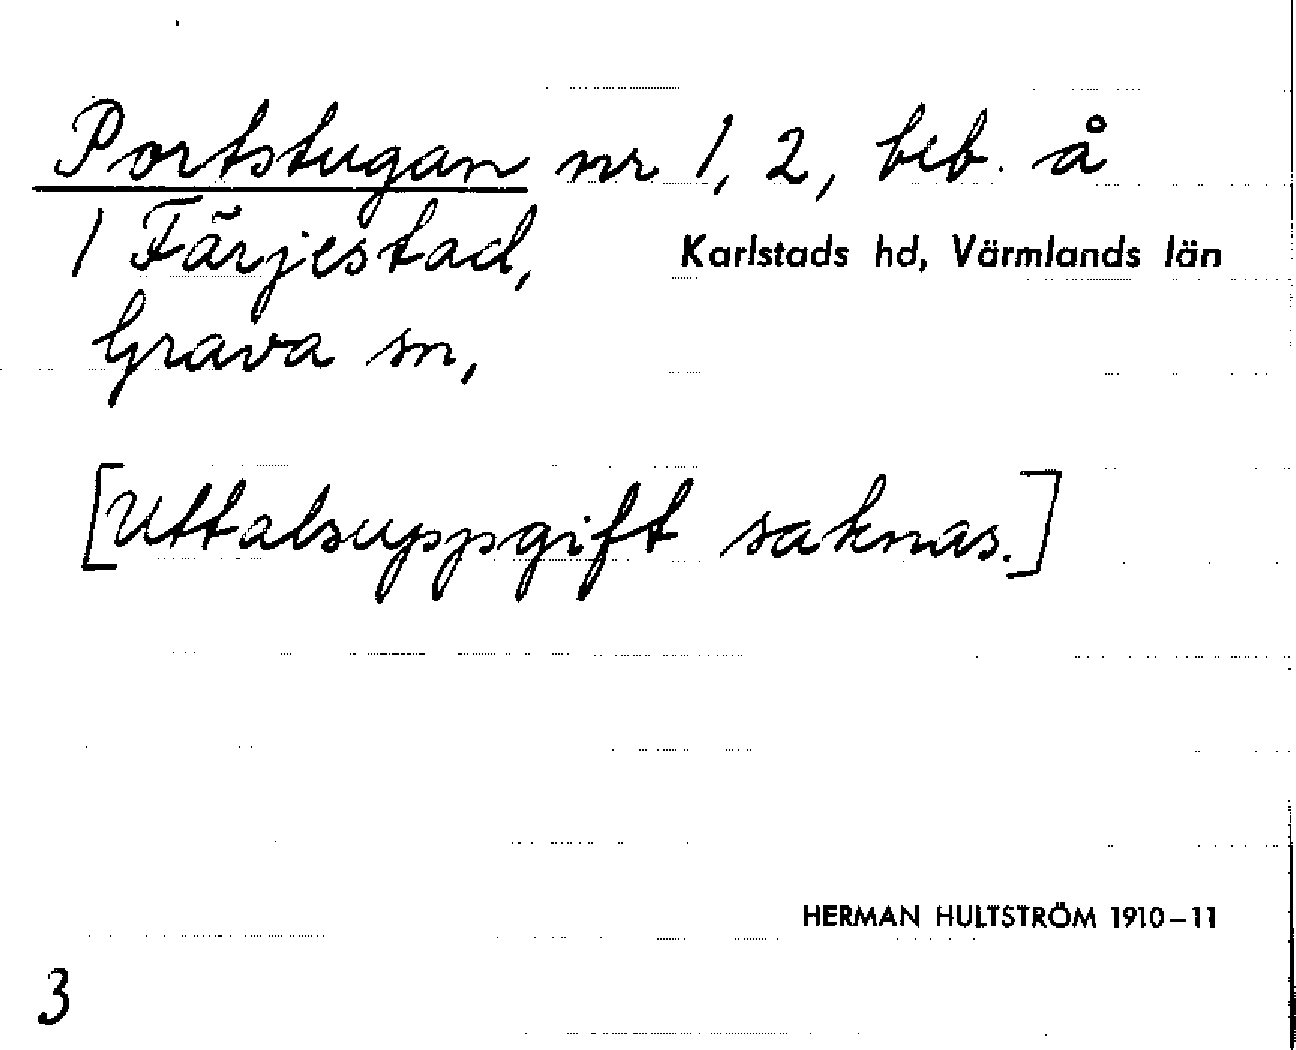 Portstugan nr 1, 2, beb. å
1 Färjestad,
Karlstads hd, Värmlands län
Grava sn,
[Uttalsuppgift saknas.]
HERMAN HULTSTRÖM 1910–11
3